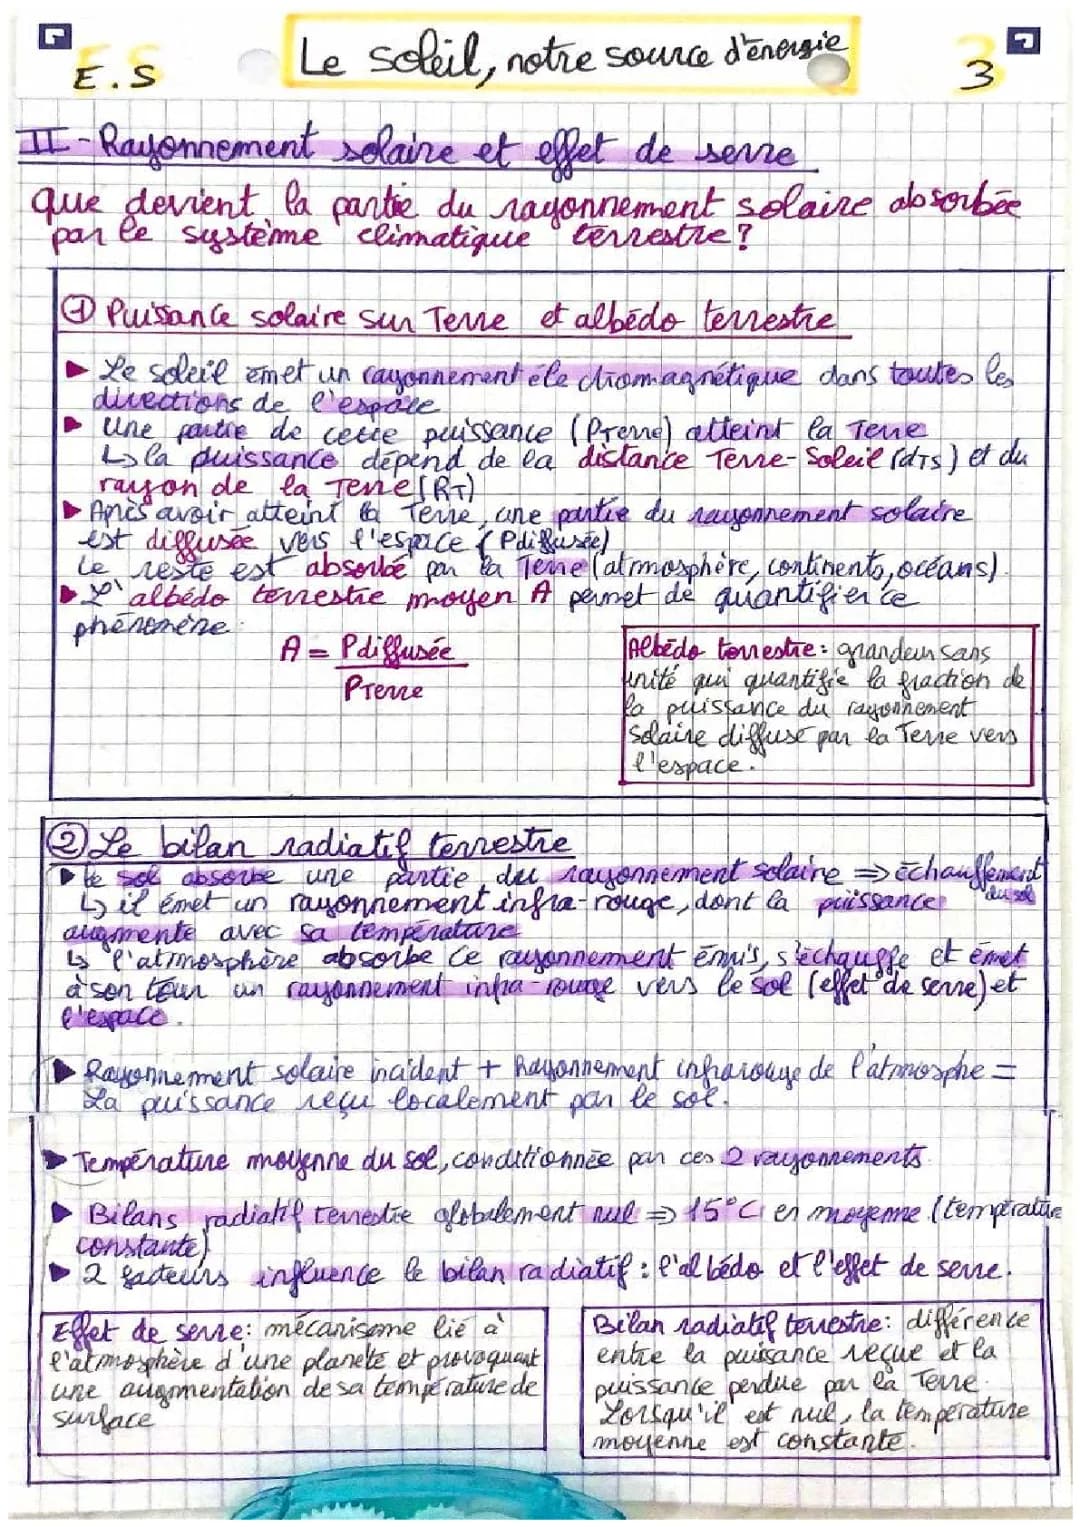 E.S
Le soleil, notre source d'énergie
3
II - Rayonnement solaire et effet de serre
que devient la partie du rayonnement solaire absorbée
par le système climatique terrestre?
① Puissance solaire sur Terre et albédo terrestre
▶ Le soleil émet un rayonnement électromagnétique dans toutes les
directions de l'espace
▶ une partie de cette puissance (PTerre) atteint la Terre
↳ la puissance dépend de la distance Terre-Soleil (dTS) et du
rayon de la Terre (RT)
▶ Après avoir atteint la Terre, une partie du rayonnement solaire
est diffusée vers l'espace (Pdiffusée)
Le reste est absorbé par la Terre (atmosphère, continents, océans).
▶ L'albédo terrestre moyen A permet de quantifier ce
phénomène:
A = Pdiffusée
PTerre
Albédo terrestre: grandeur sans
unité qui quantifie la fraction de
la puissance du rayonnement
solaire diffusé par la Terre vers
l'espace.
② Le bilan radiatif terrestre
▶ Le sol absorbe une partie du rayonnement solaire ⇒ échauffement
du sol
↳ il émet un rayonnement infra-rouge, dont la puissance
augmente avec sa température
↳ l'atmosphère absorbe ce rayonnement émis, s'échauffe et émet
à son tour un rayonnement infra-rouge vers le sol (effet de serre) et
l'espace.
▶ Rayonnement solaire incident + Rayonnement infrarouge de l'atmosphe =
La puissance reçu localement par le sol.
▶ Température moyenne du sol, conditionnée par ces 2 rayonnements.
▶ Bilans radiatif terrestre globalement nul ⇒ 15°C en moyenne (température
constante)
▶ 2 facteurs influence le bilan radiatif : l'albédo et l'effet de serre.
Effet de serre: mécanisme lié à
l'atmosphère d'une planète et provoquant
une augmentation de sa température de
surface
Bilan radiatif terrestre: différence
entre la puissance reçue et la
puissance perdue par la Terre.
Lorsqu'il est nul, la température
moyenne est constante.